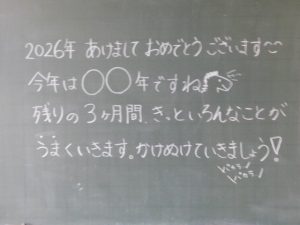 2026年 あけまして おめでとう ございます〜
今年は〇〇年ですね
残りの3ヶ月間、きっといろんなことが
うまくいきます。かけぬけていきましょう!